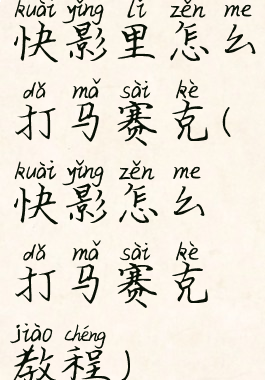 kuài yǐng lǐ zěn me
快影里怎么
dǎ mǎ sài kè
打马赛克(
kuài yǐng zěn me
快影怎么
dǎ mǎ sài kè
打马赛克
jiào chéng
教程)